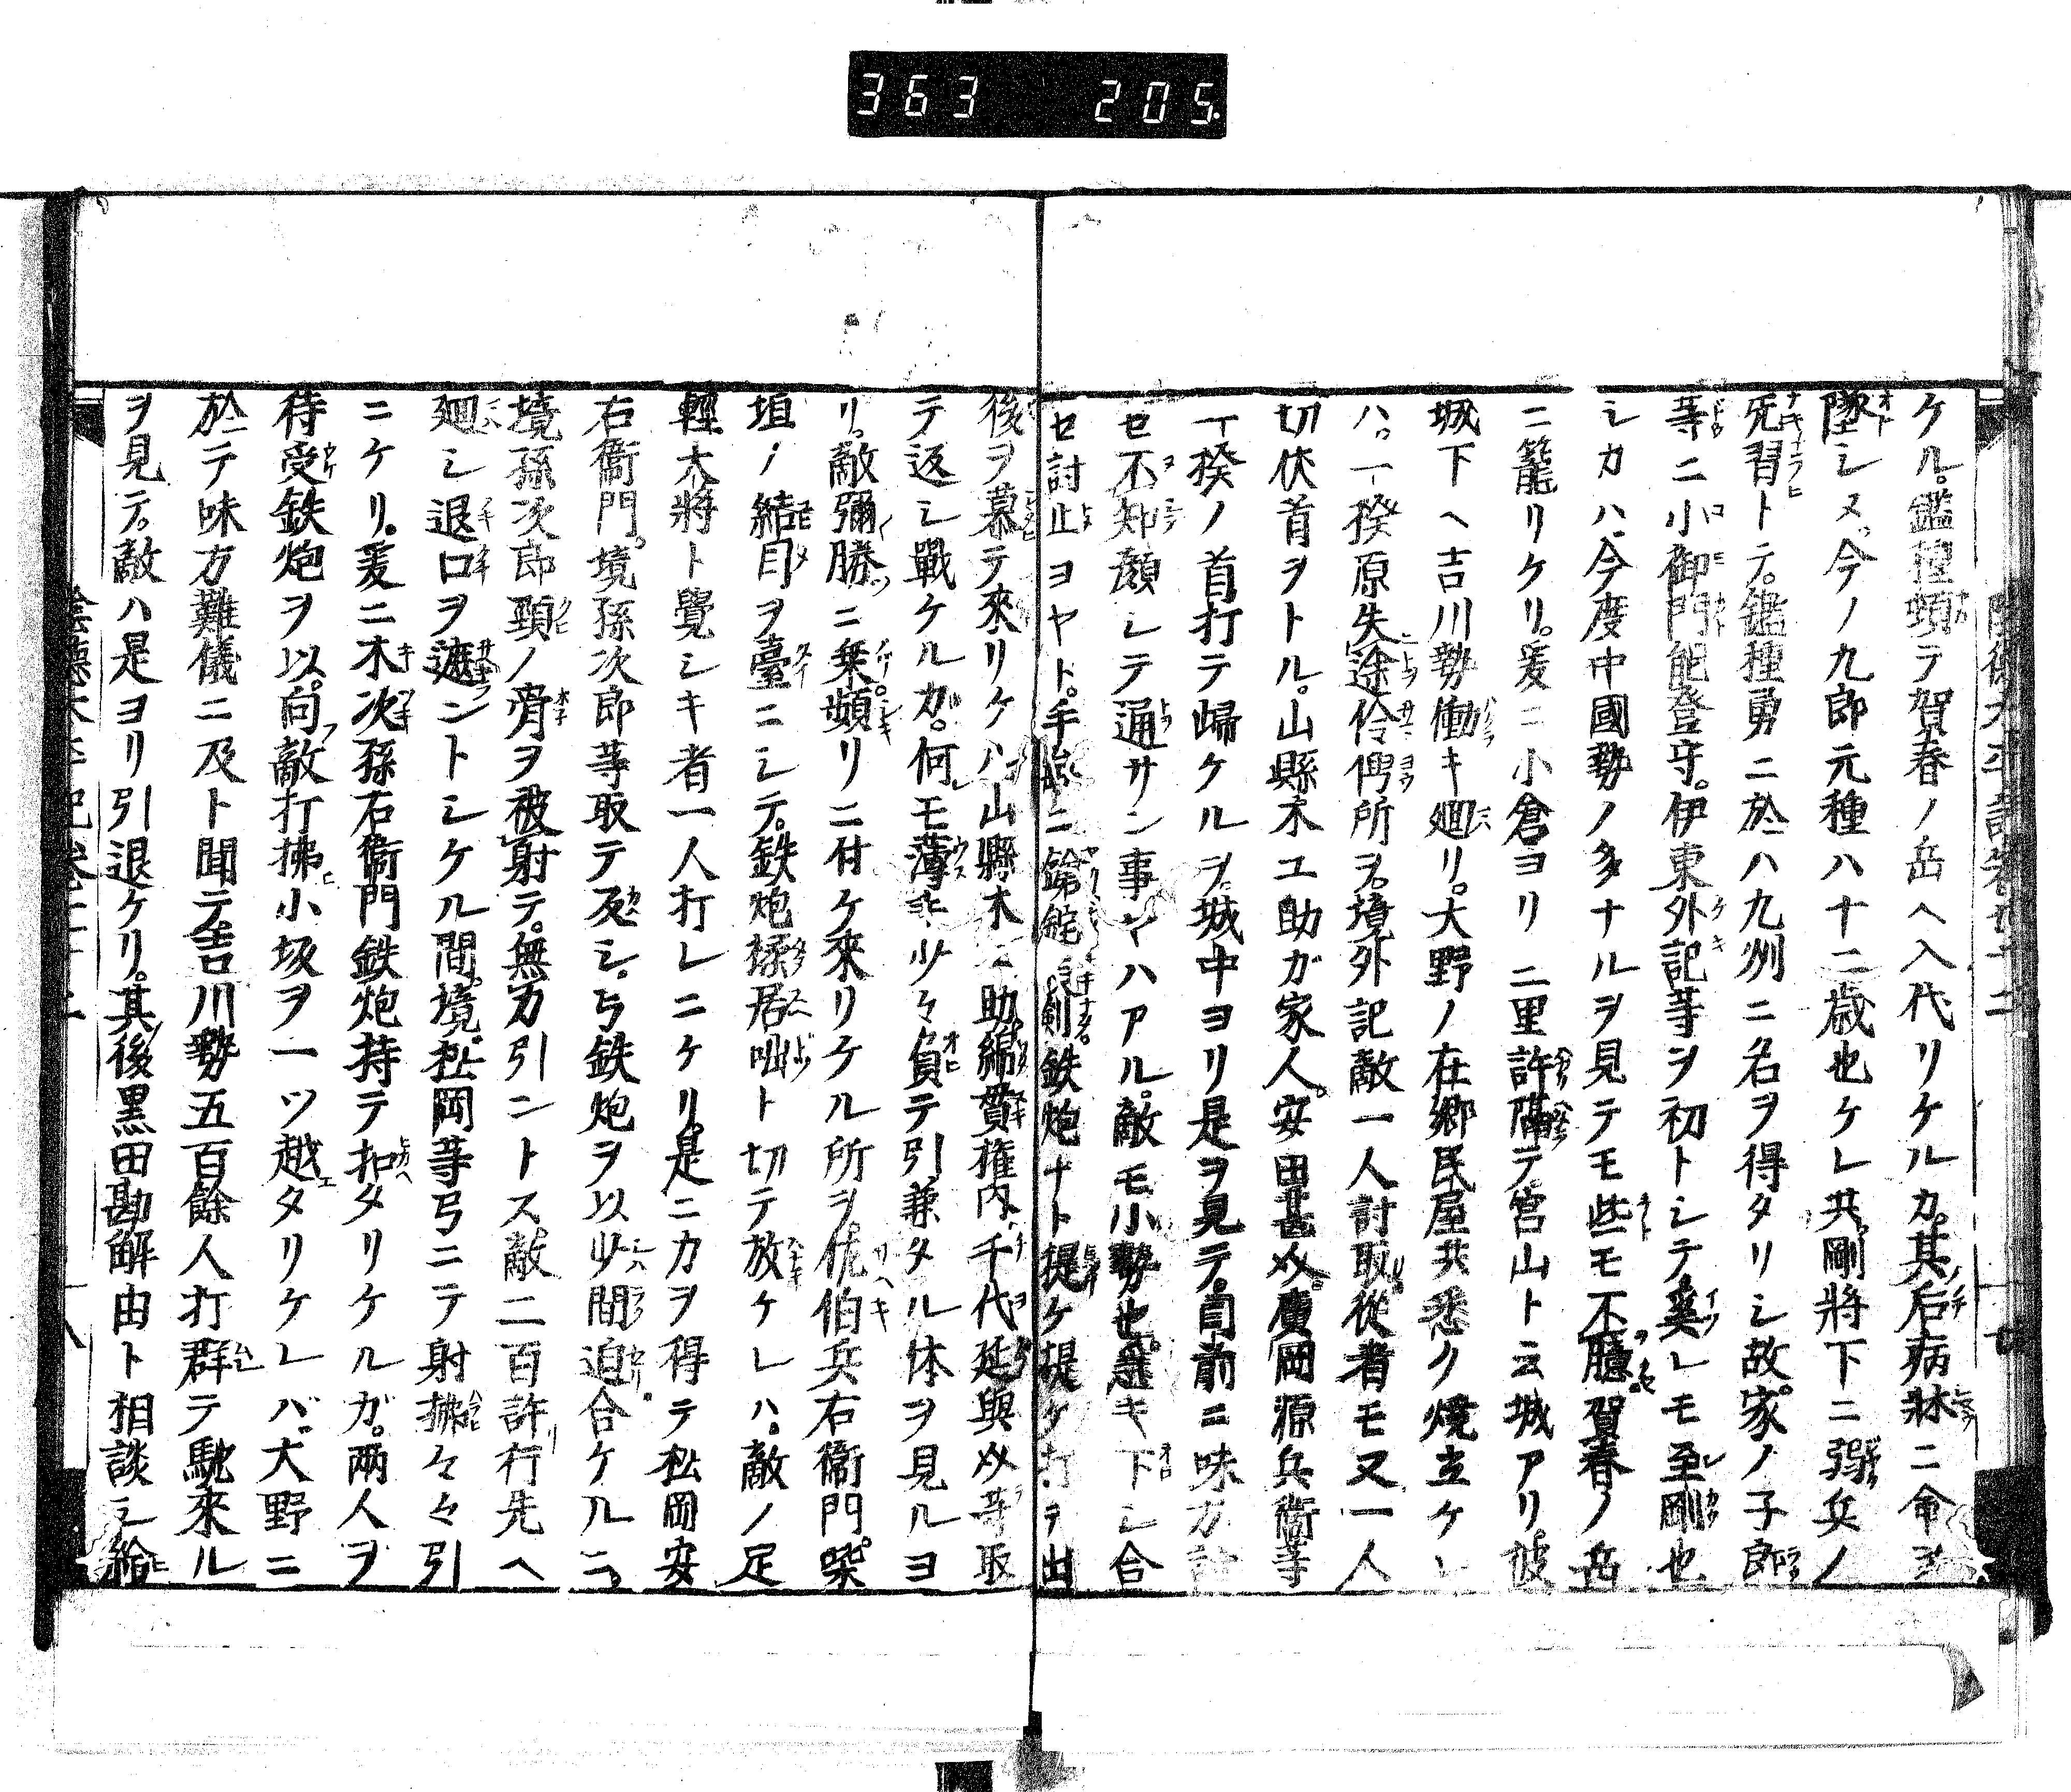 363 205.
ケル。鑑種頓テ賀春ノ岳ヘ入代リケルカ。其后病牀ニ命ヲ
墜シヌ。今ノ九郎元種ハ十二歳也ケレ共。剛將下ニ弱兵ノ
无習トテ。鑑種勇ニ於ハ九州ニ名ヲ得タリシ故。家ノ子郎
等ニ小御門能登守。伊東外記等ヲ初トシテ奚レモ至剛也
シカハ。今度中國勢ノ多ナルヲ見テモ些モ不臆。賀春ノ岳
ニ籠リケリ。爰ニ小倉ヨリ二里許隔テ宮山ト云城アリ。彼
城下ヘ吉川勢働キ廻リ。大野ノ在郷民屋共悉ク燒立ケレ
ハ。一揆原失途伶俜所ヲ。境外記敵一人討取。從者モ又一人
切伏首ヲトル。山縣木工助ガ家人。安田甚以。廣岡源兵衛等
一揆ノ首打テ歸ケルヲ。城中ヨリ是ヲ見テ。目前ニ味方討
セ不知顔シテ通サン事ヤハアル。敵モ小勢也。進キ下シ合
セ討止ヨヤト。手始ニ鎗 剣鉄炮ナト提ケ提ケ打テ出
後ヲ慕テ來リケハ。山縣木工助。綿貫權内。千代延與以等取
テ返シ戰ケルガ。何モ薄手少々負テ引兼タル体ヲ見ルヨ
リ。敵彌勝ニ乗。頻リニ付ケ來リケル所ヲ。佐伯兵右衛門。柴
垣ノ結目ヲ臺ニシテ。鉄炮 居咄ト切テ放ケレハ。敵ノ足
輕大將ト覺シキ者一人打レニケリ。是ニカヲ得テ松岡安
右衛門。境孫次郎等取テ反シ。弓鉄炮ヲ以少間迫合ケルニ。
境孫次郎頸ノ旁ヲ被射テ。無力引ントス。敵二百許行先ヘ
廻シ退口ヲ遮ントシケル間。境。松岡等弓ニテ射拂々々引
ニケリ。爰ニ木次孫右衛門鉄炮持テ扣タリケルガ。兩人ヲ
待受鉄炮ヲ以。向敵打拂小坂ヲ一ツ越タリケレバ。大野ニ
於テ味方難儀ニ及ト聞テ。吉川勢五百餘人打群テ馳來ル
ヲ見テ。敵ハ是ヨリ引退ケリ。其後黒田勘解由ト相談シ給